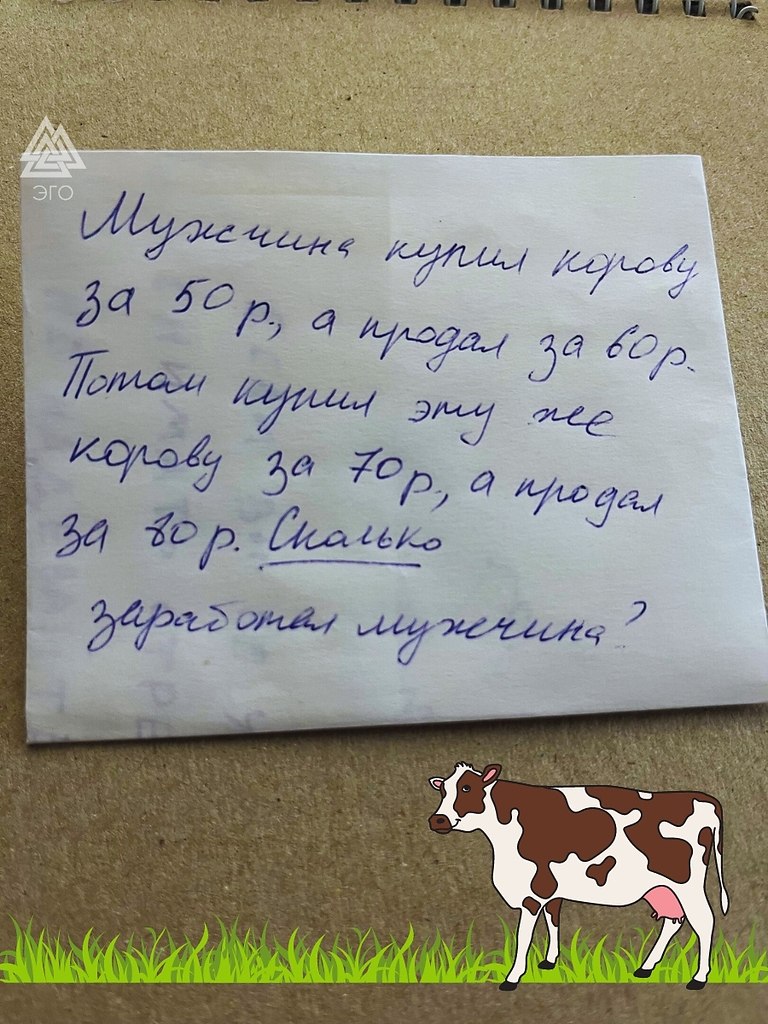 ЭГО
Мужчина купил корову
за 50 р., а продал за 60 р.
Потом купил эту же
корову за 70 р., а продал
за 80 р. Сколько
заработал мужчина?